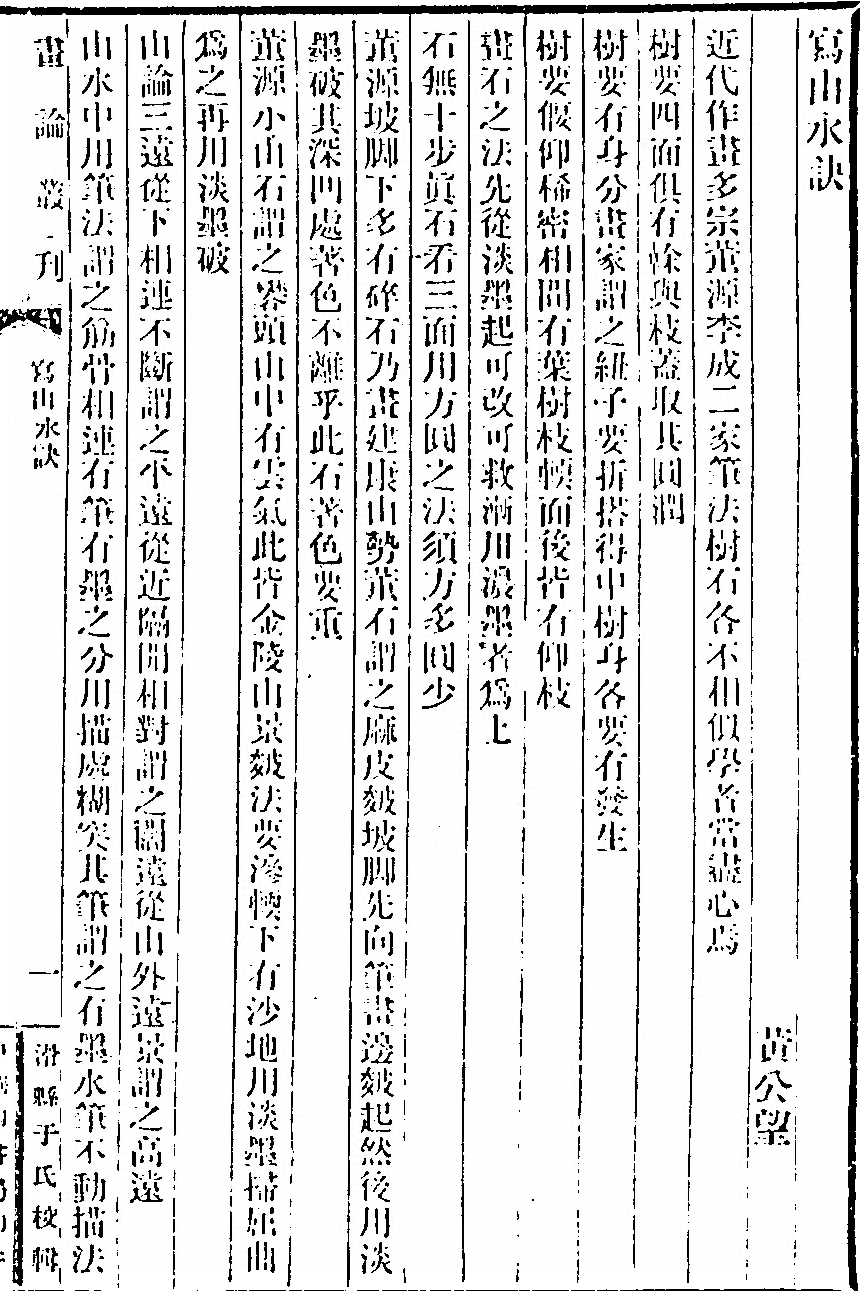 寫山水訣
黃公望
近代作畫多宗董源李成二家筆法樹石各不相似學者當盡心焉
樹要四面俱有榦與枝蓋取其圓潤
樹要有身分畫家謂之紐子要折搭得中樹身各要有發生
樹要偃仰稀密相間有葉樹枝輭面後皆有仰枝
畫石之法先從淡墨起可改可救漸用濃墨者爲上
石無十步眞石看三面用方圓之法須方多圓少
董源坡脚下多有碎石乃畫建康山勢董石謂之麻皮皴坡脚先向筆畫邊皴起然後用淡
墨破其深凹處著色不離乎此石著色要重
董源小山石謂之礬頭山中有雲氣此皆金陵山景皴法要滲輭下有沙地用淡墨掃屈曲
爲之再用淡墨破
山論三遠從下相連不斷謂之平遠從近隔開相對謂之闊遠從山外遠景謂之高遠
山水中用筆法謂之筋骨相連有筆有墨之分用描處糊突其筆謂之有墨水筆不動描法
畫論叢刊
寫山水訣
一
滑縣于氏校輯